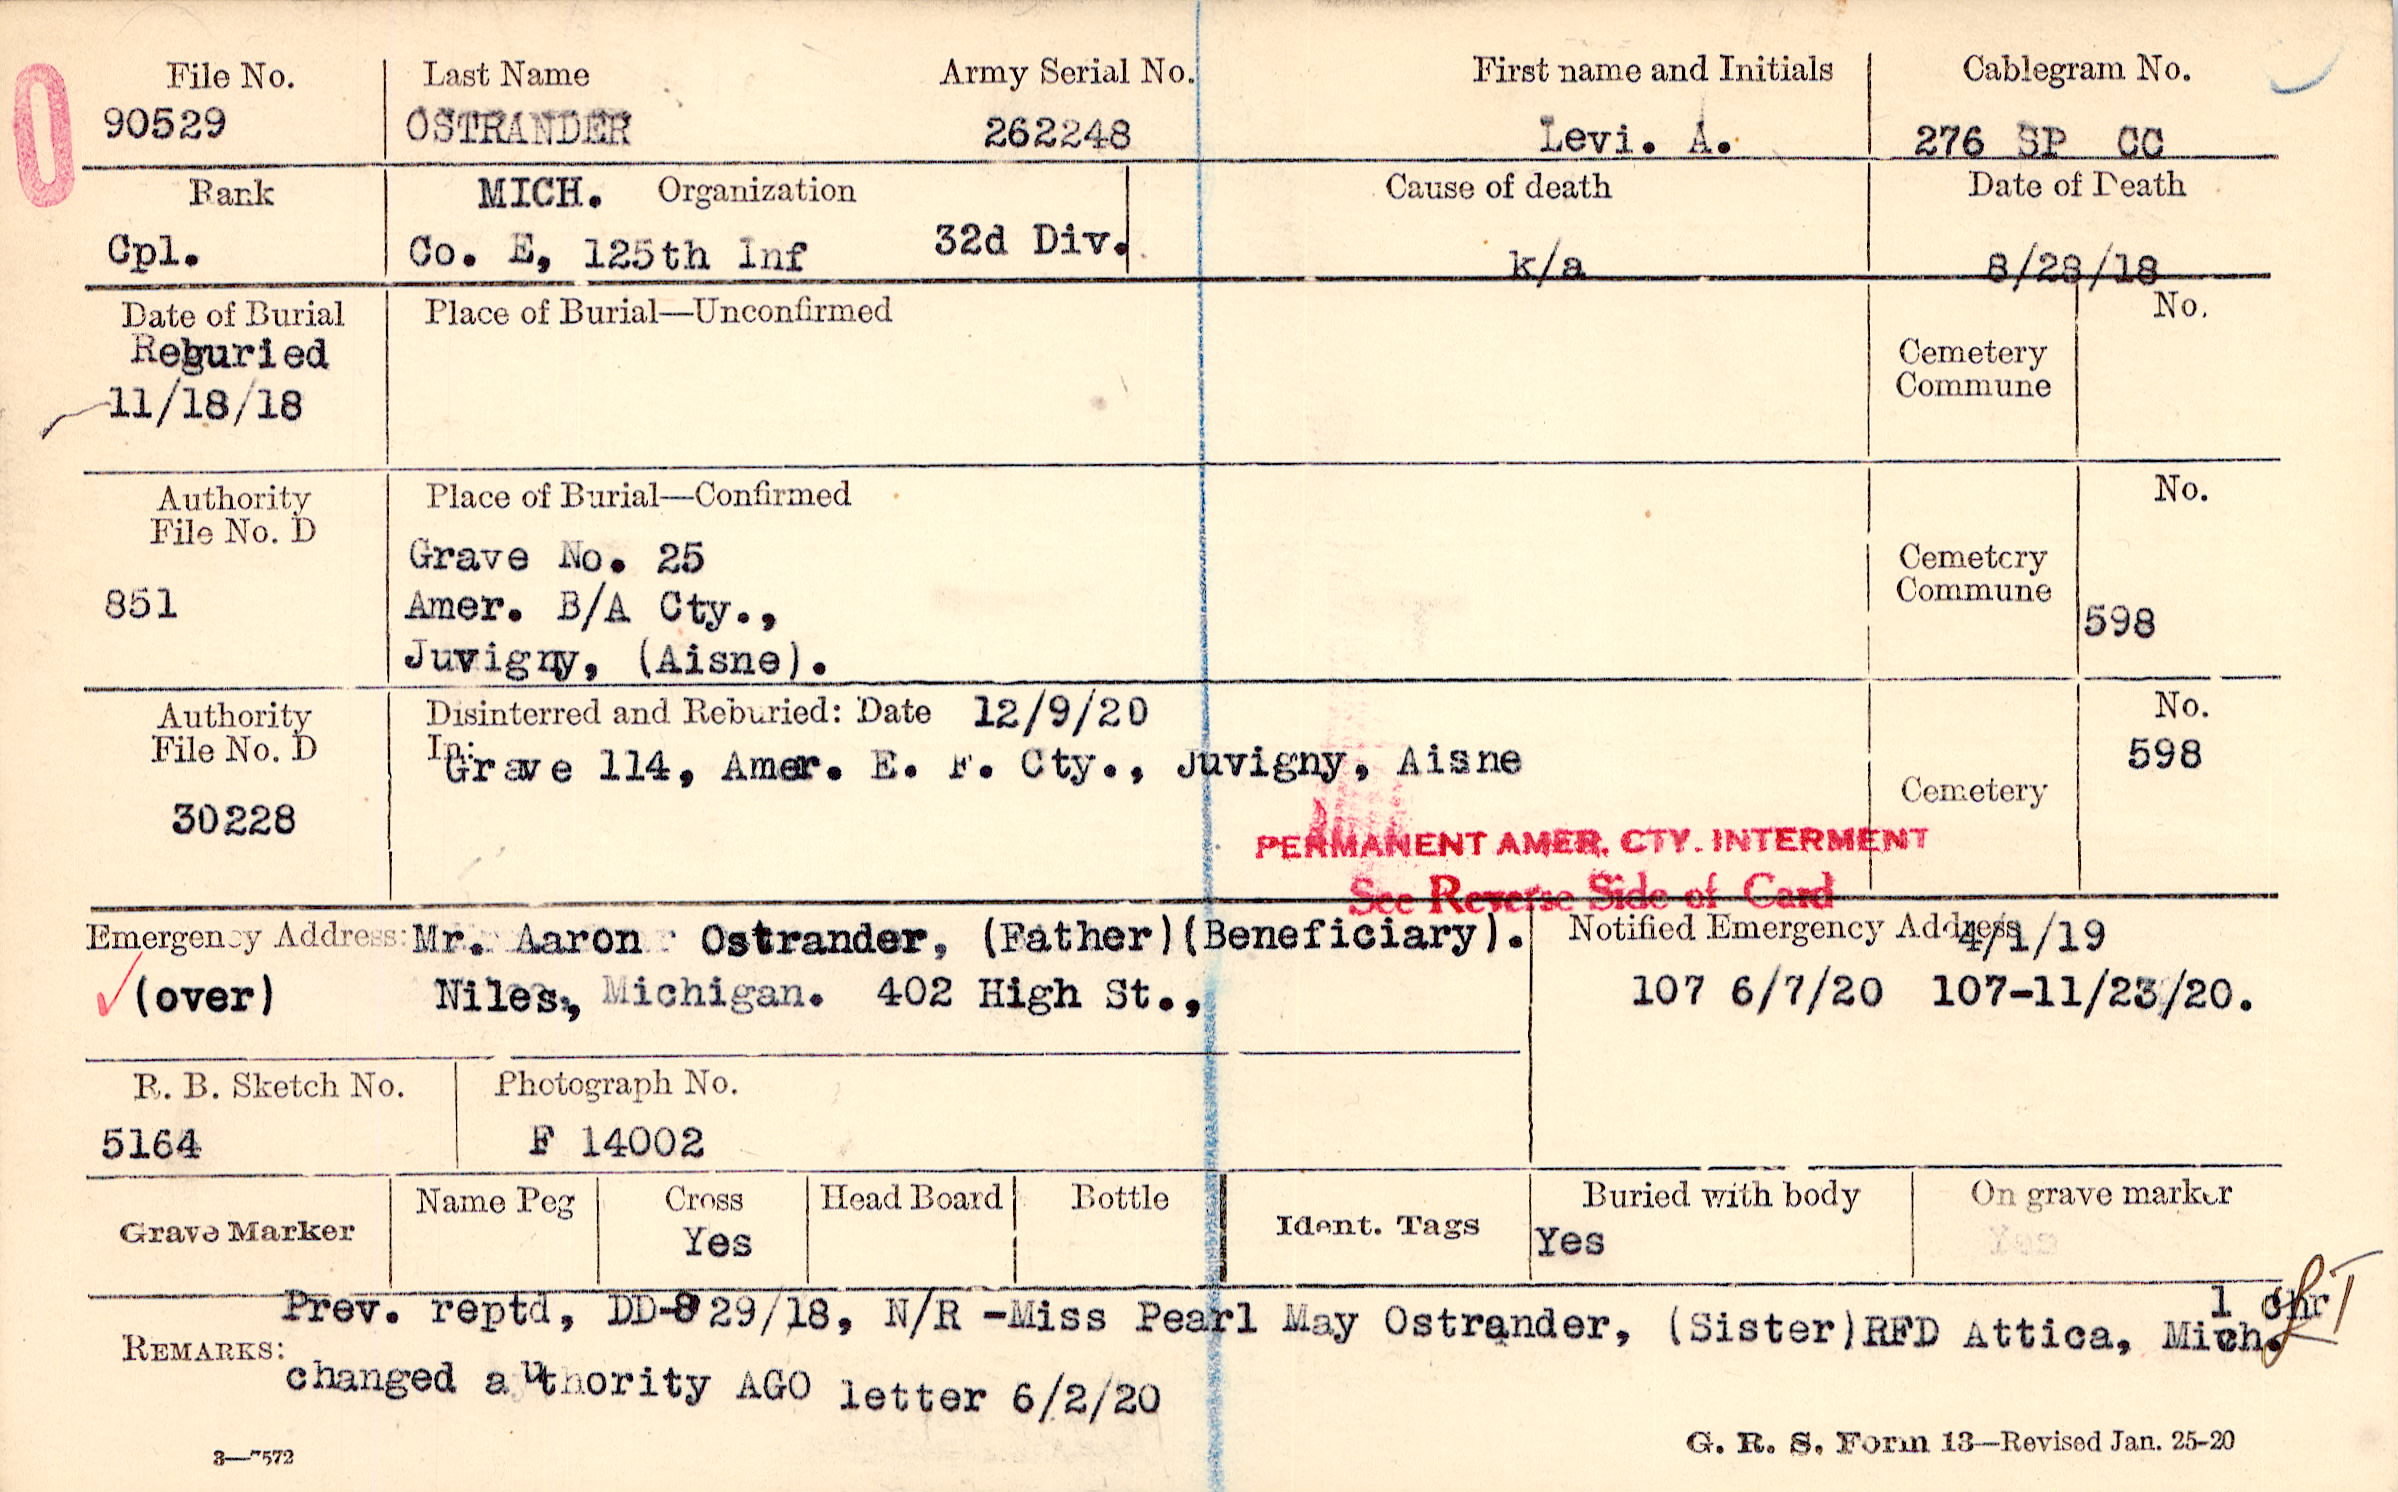 File No.
90529
Last Name
OSTRANDER
Army Serial No.
262248
First name and Initials
Levi. A.
Cablegram No.
276 SP CC
Rank
Cpl.
MICH. Organization
Co. E, 125th Inf 32d Div.
Cause of death
k/a
Date of Death
8/28/18
Date of Burial
Reburied
11/18/18
Place of Burial—Unconfirmed
Cemetery
Commune
No.
Authority
File No. D
851
Place of Burial—Confirmed
Grave No. 25
Amer. B/A Cty.,
Juvigny, (Aisne).
Cemetery
Commune
No.
598
Authority
File No. D
30228
Disinterred and Reburied: Date 12/9/20
In:
Grave 114, Amer. E. F. Cty., Juvigny, Aisne
Cemetery
No.
598
PERMANENT AMER. CTY. INTERMENT
See Reverse Side of Card
Emergency Address: Mr. Aaron Ostrander, (Father)(Beneficiary).
(over) Niles, Michigan. 402 High St.,
Notified Emergency Address 4/1/19
107 6/7/20 107-11/23/20.
R. B. Sketch No.
5164
Photograph No.
F 14002
Grave Marker
Name Peg
Cross
Yes
Head Board
Bottle
Ident. Tags
Buried with body
Yes
On grave marker
Yes
1 chr
REMARKS:
Prev. reptd, DD-8 29/18, N/R -Miss Pearl May Ostrander, (Sister)RFD Attica, Mich.
changed authority AGO letter 6/2/20
3—7572
G. R. S. Form 13—Revised Jan. 25-20